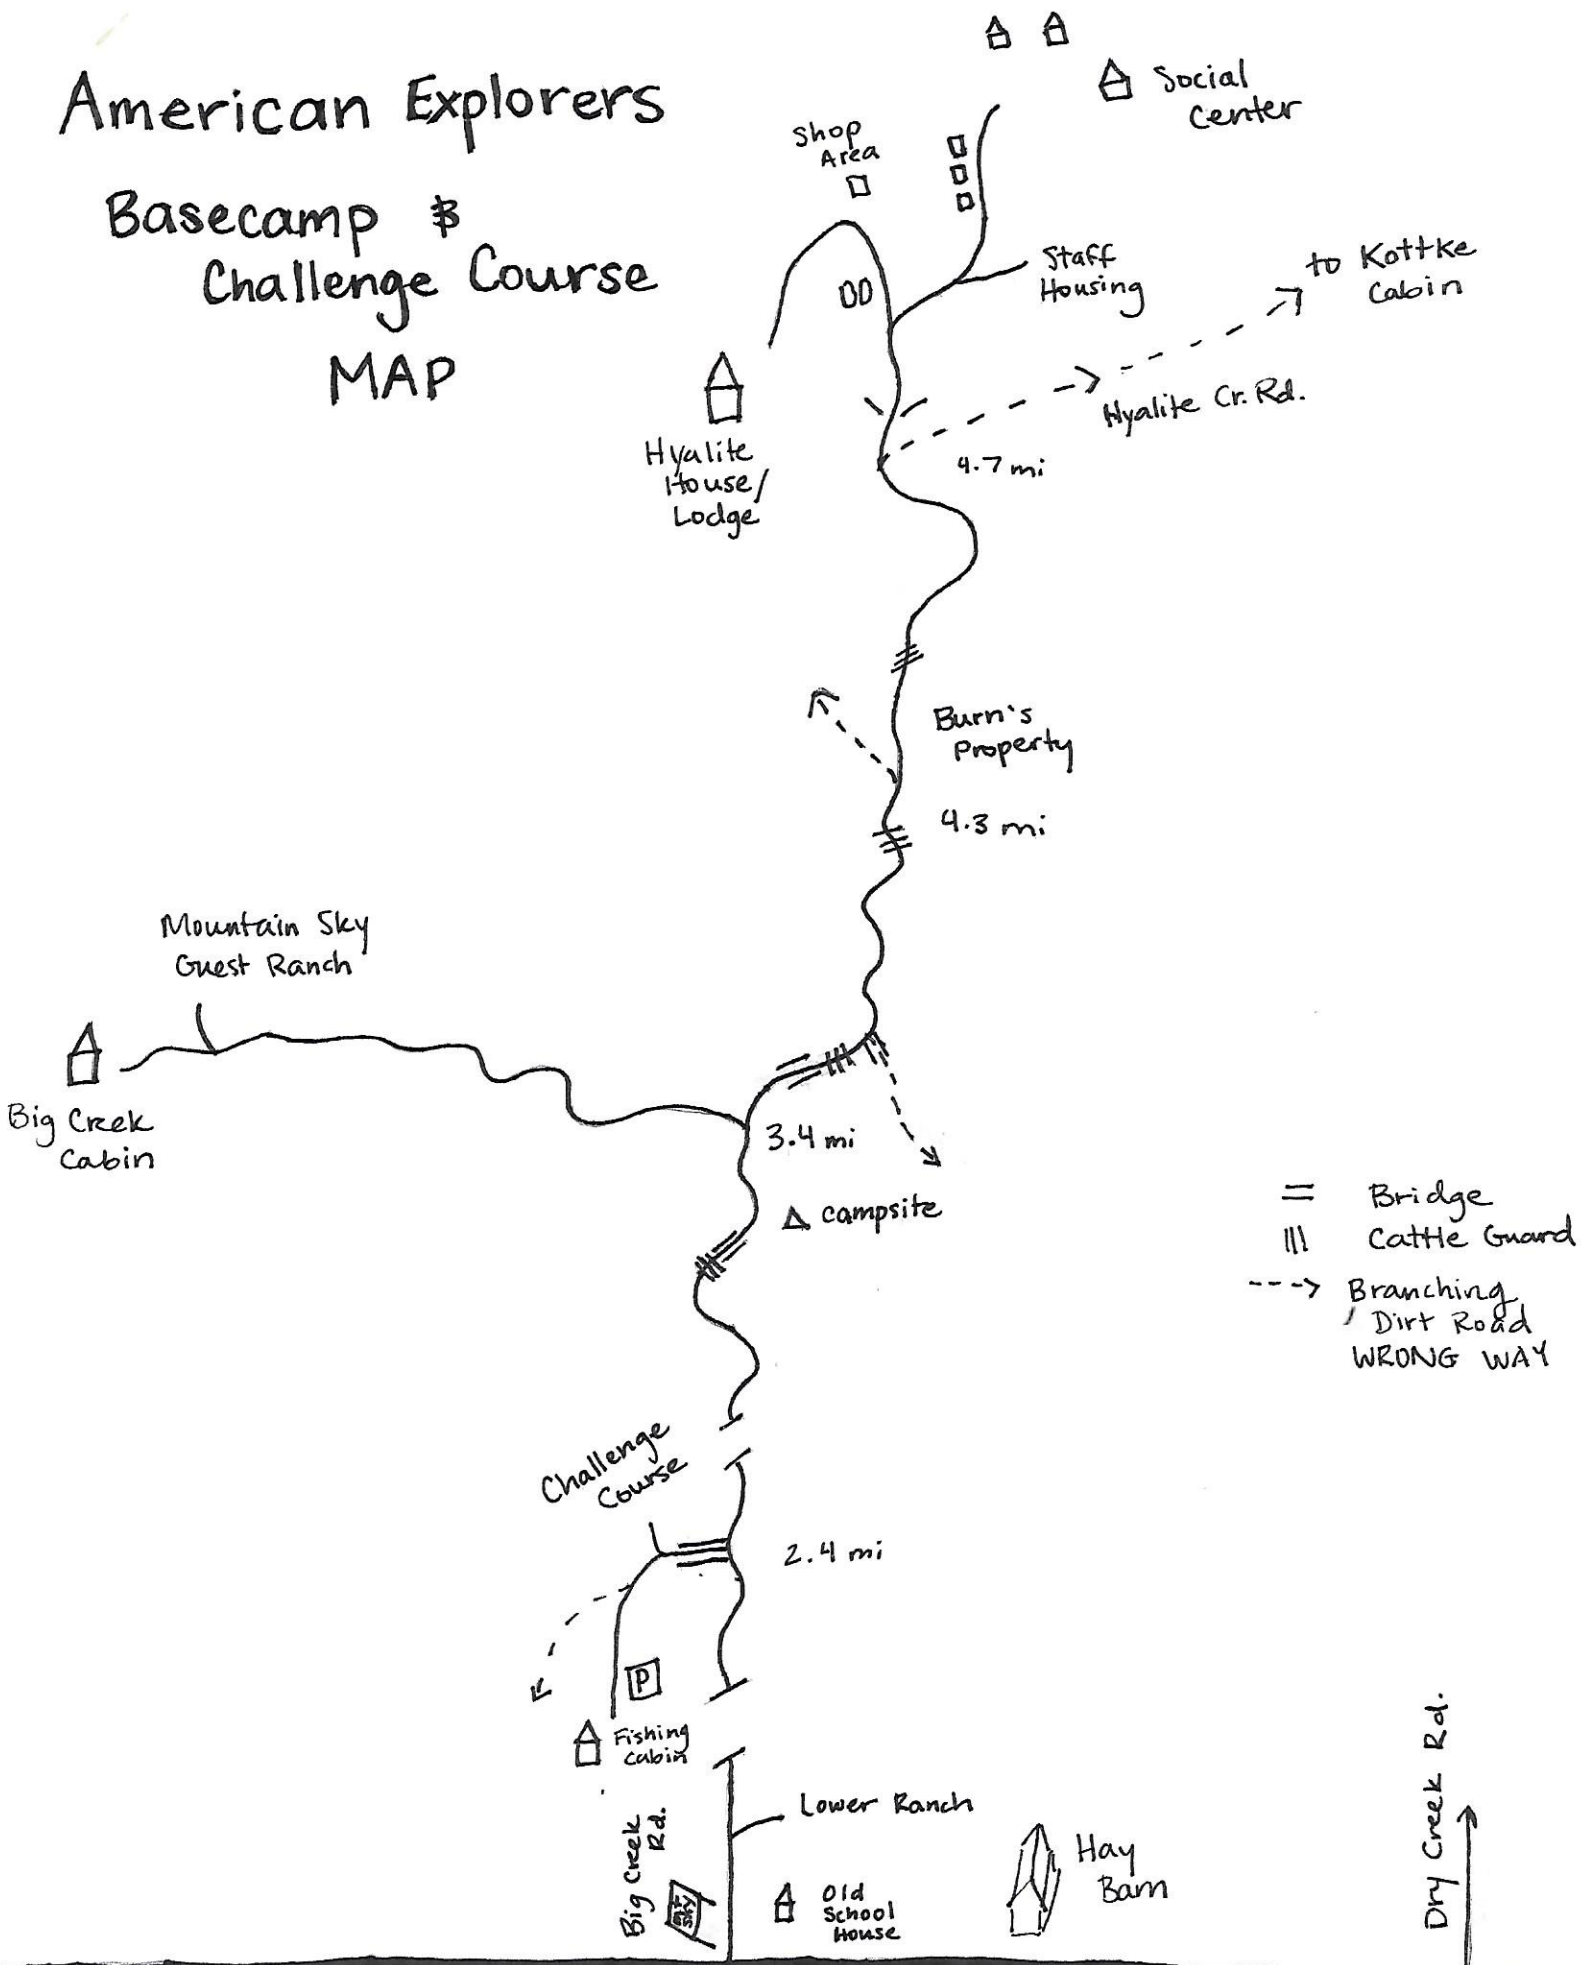 American Explorers
Basecamp &
Challenge Course
MAP
Social
Center
Shop
Area
Staff
Housing
to Kottke
Cabin
Hyalite Cr. Rd.
Hyalite
House/
Lodge
4.7 mi
Burn's
Property
4.3 mi
Mountain Sky
Guest Ranch
Big Creek
Cabin
3.4 mi
campsite
Bridge
Cattle Guard
Branching
Dirt Road
WRONG WAY
Challenge
Course
2.4 mi
P
Fishing
Cabin
Lower Ranch
Big Creek
Rd.
SKY
Old
School
House
Hay
Barn
Dry Creek Rd.